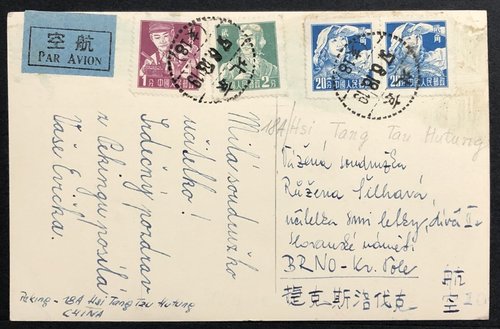 空航
PAR AVION
1分
2分
20分 中国人民邮政
20分 中国人民邮政
18A Hsi Tang Tau Hutung
Milá soudružko
učitelko!
Srdečný pozdrav
z Pekingu posílá
Vaše Evička.
Peking - 18A Hsi Tang Tau Hutung
CHINA
Vážená soudružka
Růžena Šilhavá,
učitelka
Slovanské náměstí
BRNO - Kr. Pole
捷克斯洛伐克
航空